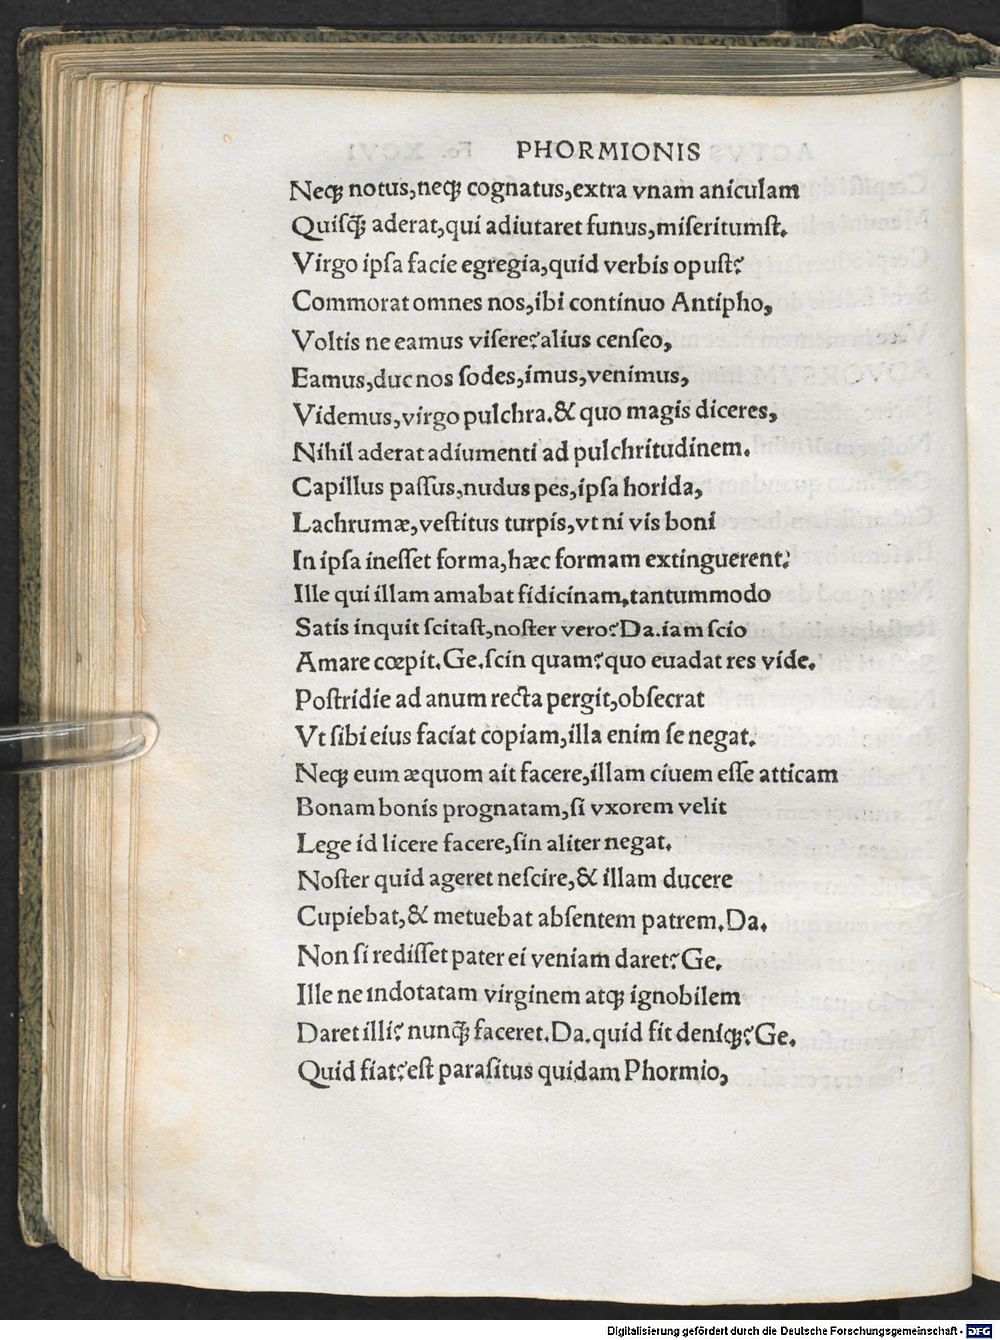 PHORMIONIS
Neqꝫ notus,neqꝫ cognatus,extra vnam aniculam
Quiſꝗ̃ aderat,qui adiutaret funus,miſeritumſt.
Virgo ipſa facie egregia,quid verbis opuſt?
Commorat omnes nos,ibi continuo Antipho,
Voltis ne eamus viſere?alius cenſeo,
Eamus,duc nos ſodes,imus,venimus,
Videmus,virgo pulchra.& quo magis diceres,
Nihil aderat adiumenti ad pulchritudinem.
Capillus paſſus,nudus pes,ipſa horida,
Lachrumæ,veſtitus turpis,vt ni vis boni
In ipſa ineſſet forma,hæc formam extinguerent?
Ille qui illam amabat fidicinam,tantummodo
Satis inquit ſcitaſt,noſter vero?Da.iam ſcio
Amare cœpit.Ge.ſcin quam?quo euadat res vide.
Poſtridie ad anum recta pergit,obſecrat
Vt ſibi eius faciat copiam,illa enim ſe negat.
Neqꝫ eum æquom ait facere,illam ciuem eſſe atticam
Bonam bonis prognatam,ſi vxorem velit
Lege id licere facere,ſin aliter negat.
Noſter quid ageret neſcire,& illam ducere
Cupiebat,& metuebat abſentem patrem.Da.
Non ſi rediſſet pater ei veniam daret?Ge.
Ille ne indotatam virginem atqꝫ ignobilem
Daret illi? nunꝗ̃ faceret.Da.quid fit deniqꝫ?Ge.
Quid fiat?eſt paraſitus quidam Phormio,
Digitalisierung gefördert durch die Deutsche Forschungsgemeinschaft - DFG